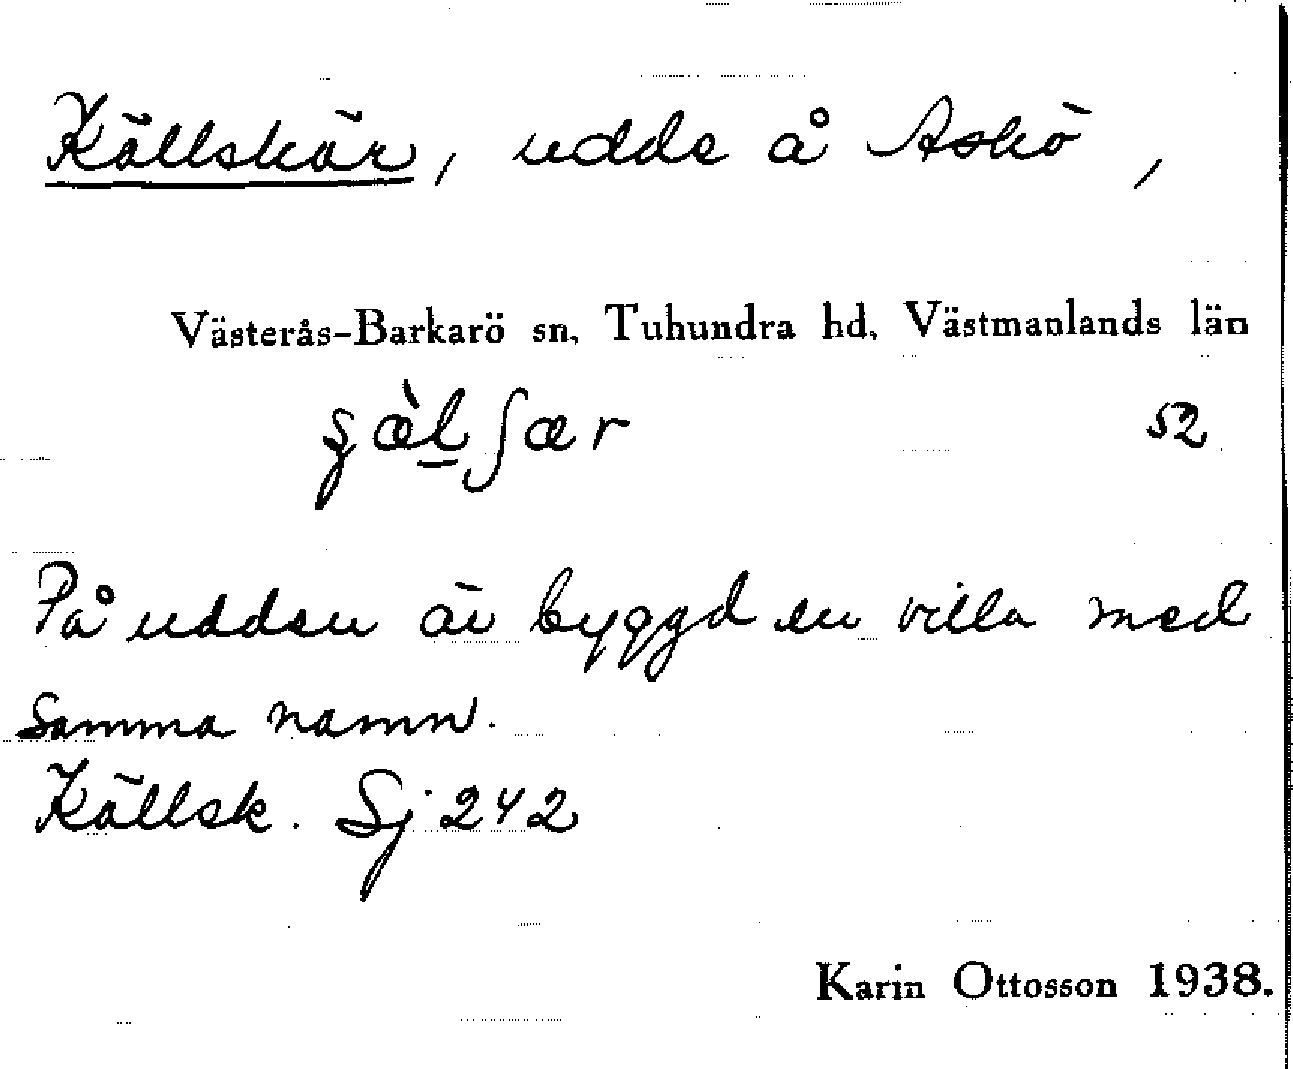 Källskär, udde å Askö,
Västerås-Barkarö sn, Tuhundra hd, Västmanlands län
52
På udden är byggd en villa med
samma namn.
Källsk. Sj 242
Karin Ottosson 1938.